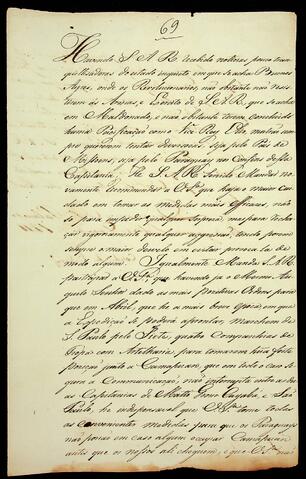 69
Havendo S A R recebido noticias pouco tran-
quilizadoras do estado inquieto em que se acha Buenos
Ayres, onde os Revolucionarios, não obstante não resis-
tirem ás Armas, e Exercito de S. A. R., que se acha
em Maldonado, e não obstante terem concluido
huma Pacificação com o Vice Rey Elio, mostrão sem
pre quererem tentar diversoens, seja pelo Pais de
Missoens, seja pelo Paraguay nos Confins dessa
Capitania; He S. A. R. Servido Mandar no-
vamente recomendar a V. Sa. que haja o maior cui-
dado em tomar as medidas mais efficazes, não
só para impedir qualquer Surpreza, mas para recha-
çar vigorosamente qualquer aggressão, tendo porem
sempre o maior desvelo em evitar provoca-la de
modo algum. Igualmente Manda S. A. R.
participar a V. Sa., que havendo o Mesmo Au-
gusto Senhor dado as mais pozitivas Ordens para
que em Abril, que he a mais boa epoca, em que
a Expedição se poderá aprontar, marchem de
S. Paulo pelo Tieté, quatro Companhias de
tropa com Artelharia, para tomarem huma forte
pozição junto a Camapuam, que em todo o caso se-
gura a Communicação, não interrupta entre as du-
as Capitanias de Matto Grosso Cuyabá, e São
Paulo, he indispensavel que V. Sa. tome todas
as convenientes medidas para que os Paraguays
não possão em caso algum occupar Camapuam
antes que os nossos ali cheguem, e que V. Sa. não